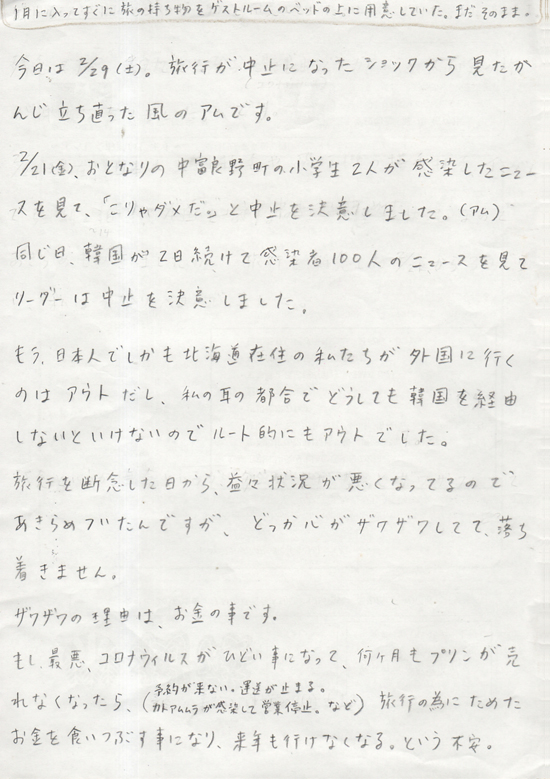 1月に入ってすぐに旅の持ち物をゲストルームのベッドの上に用意していた。まだそのまま。
今日は2/29(土)。旅行が中止になったショックから見たか
んじ立ち直った風のアムです。
2/21(金)、おとなりの中富良野町の小学生2人が感染したニュー
スを見て、「こりゃダメだ」と中止を決意しました。(アム)
同じ日、韓国が2日続けて感染者100人のニュースを見て
リーダーは中止を決意しました。
もう、日本人でしかも北海道在住の私たちが外国に行く
のはアウトだし、私の耳の都合でどうしても韓国を経由
しないといけないのでルート的にもアウトでした。
旅行を断念した日から、益々状況が悪くなってるので
あきらめついたんですが、どっか心がザワザワしてて、落ち
着きません。
ザワザワの理由は、お金の事です。
もし、最悪、コロナウィルスがひどい事になって、何ヶ月もプリンが売
れなくなったら、(予約が来ない。運送が止まる。
カトアムムラが感染して営業停止。など) 旅行の為にためた
お金を食いつぶす事になり、来年も行けなくなる。という不安。